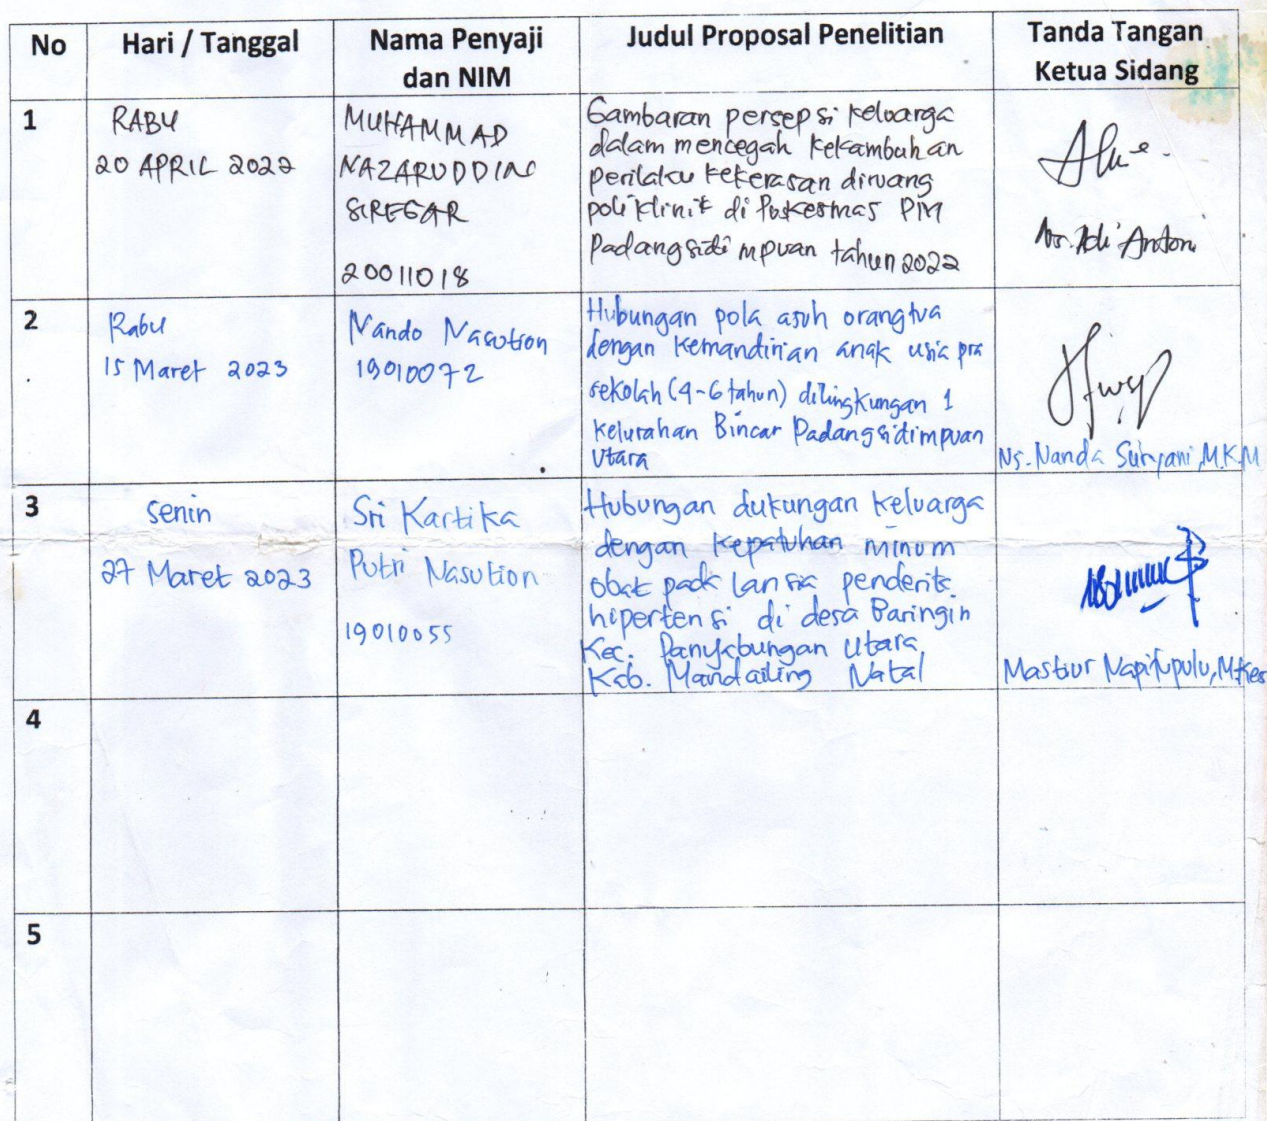 No
Hari / Tanggal
Nama Penyaji
dan NIM
Judul Proposal Penelitian
Tanda Tangan
Ketua Sidang
1
RABU
20 APRIL 2022
MUHAMMAD
NAZARUDDIN
SIREGAR
20011018
Gambaran persepsi keluarga
dalam mencegah kekambuhan
perilaku kekerasan diruang
poliklinik di Puskesmas PIM
Padangsidimpuan tahun 2022
Ns. Adi Antoni
2
Rabu
15 Maret 2023
Nando Nasution
19010072
Hubungan pola asuh orangtua
dengan kemandirian anak usia pra
sekolah (4-6 tahun) dilingkungan 1
kelurahan Bincar Padangsidimpuan
Utara
Ns. Nanda Suryani, M.K.M
3
senin
27 Maret 2023
Sri Kartika
Putri Nasution
19010055
Hubungan dukungan keluarga
dengan kepatuhan minum
obat pada lansia penderita
hipertensi di desa Baringin
Kec. Panyabungan Utara,
Kab. Mandailing Natal
Mastiur Napitupulu, M.Kes
4
5